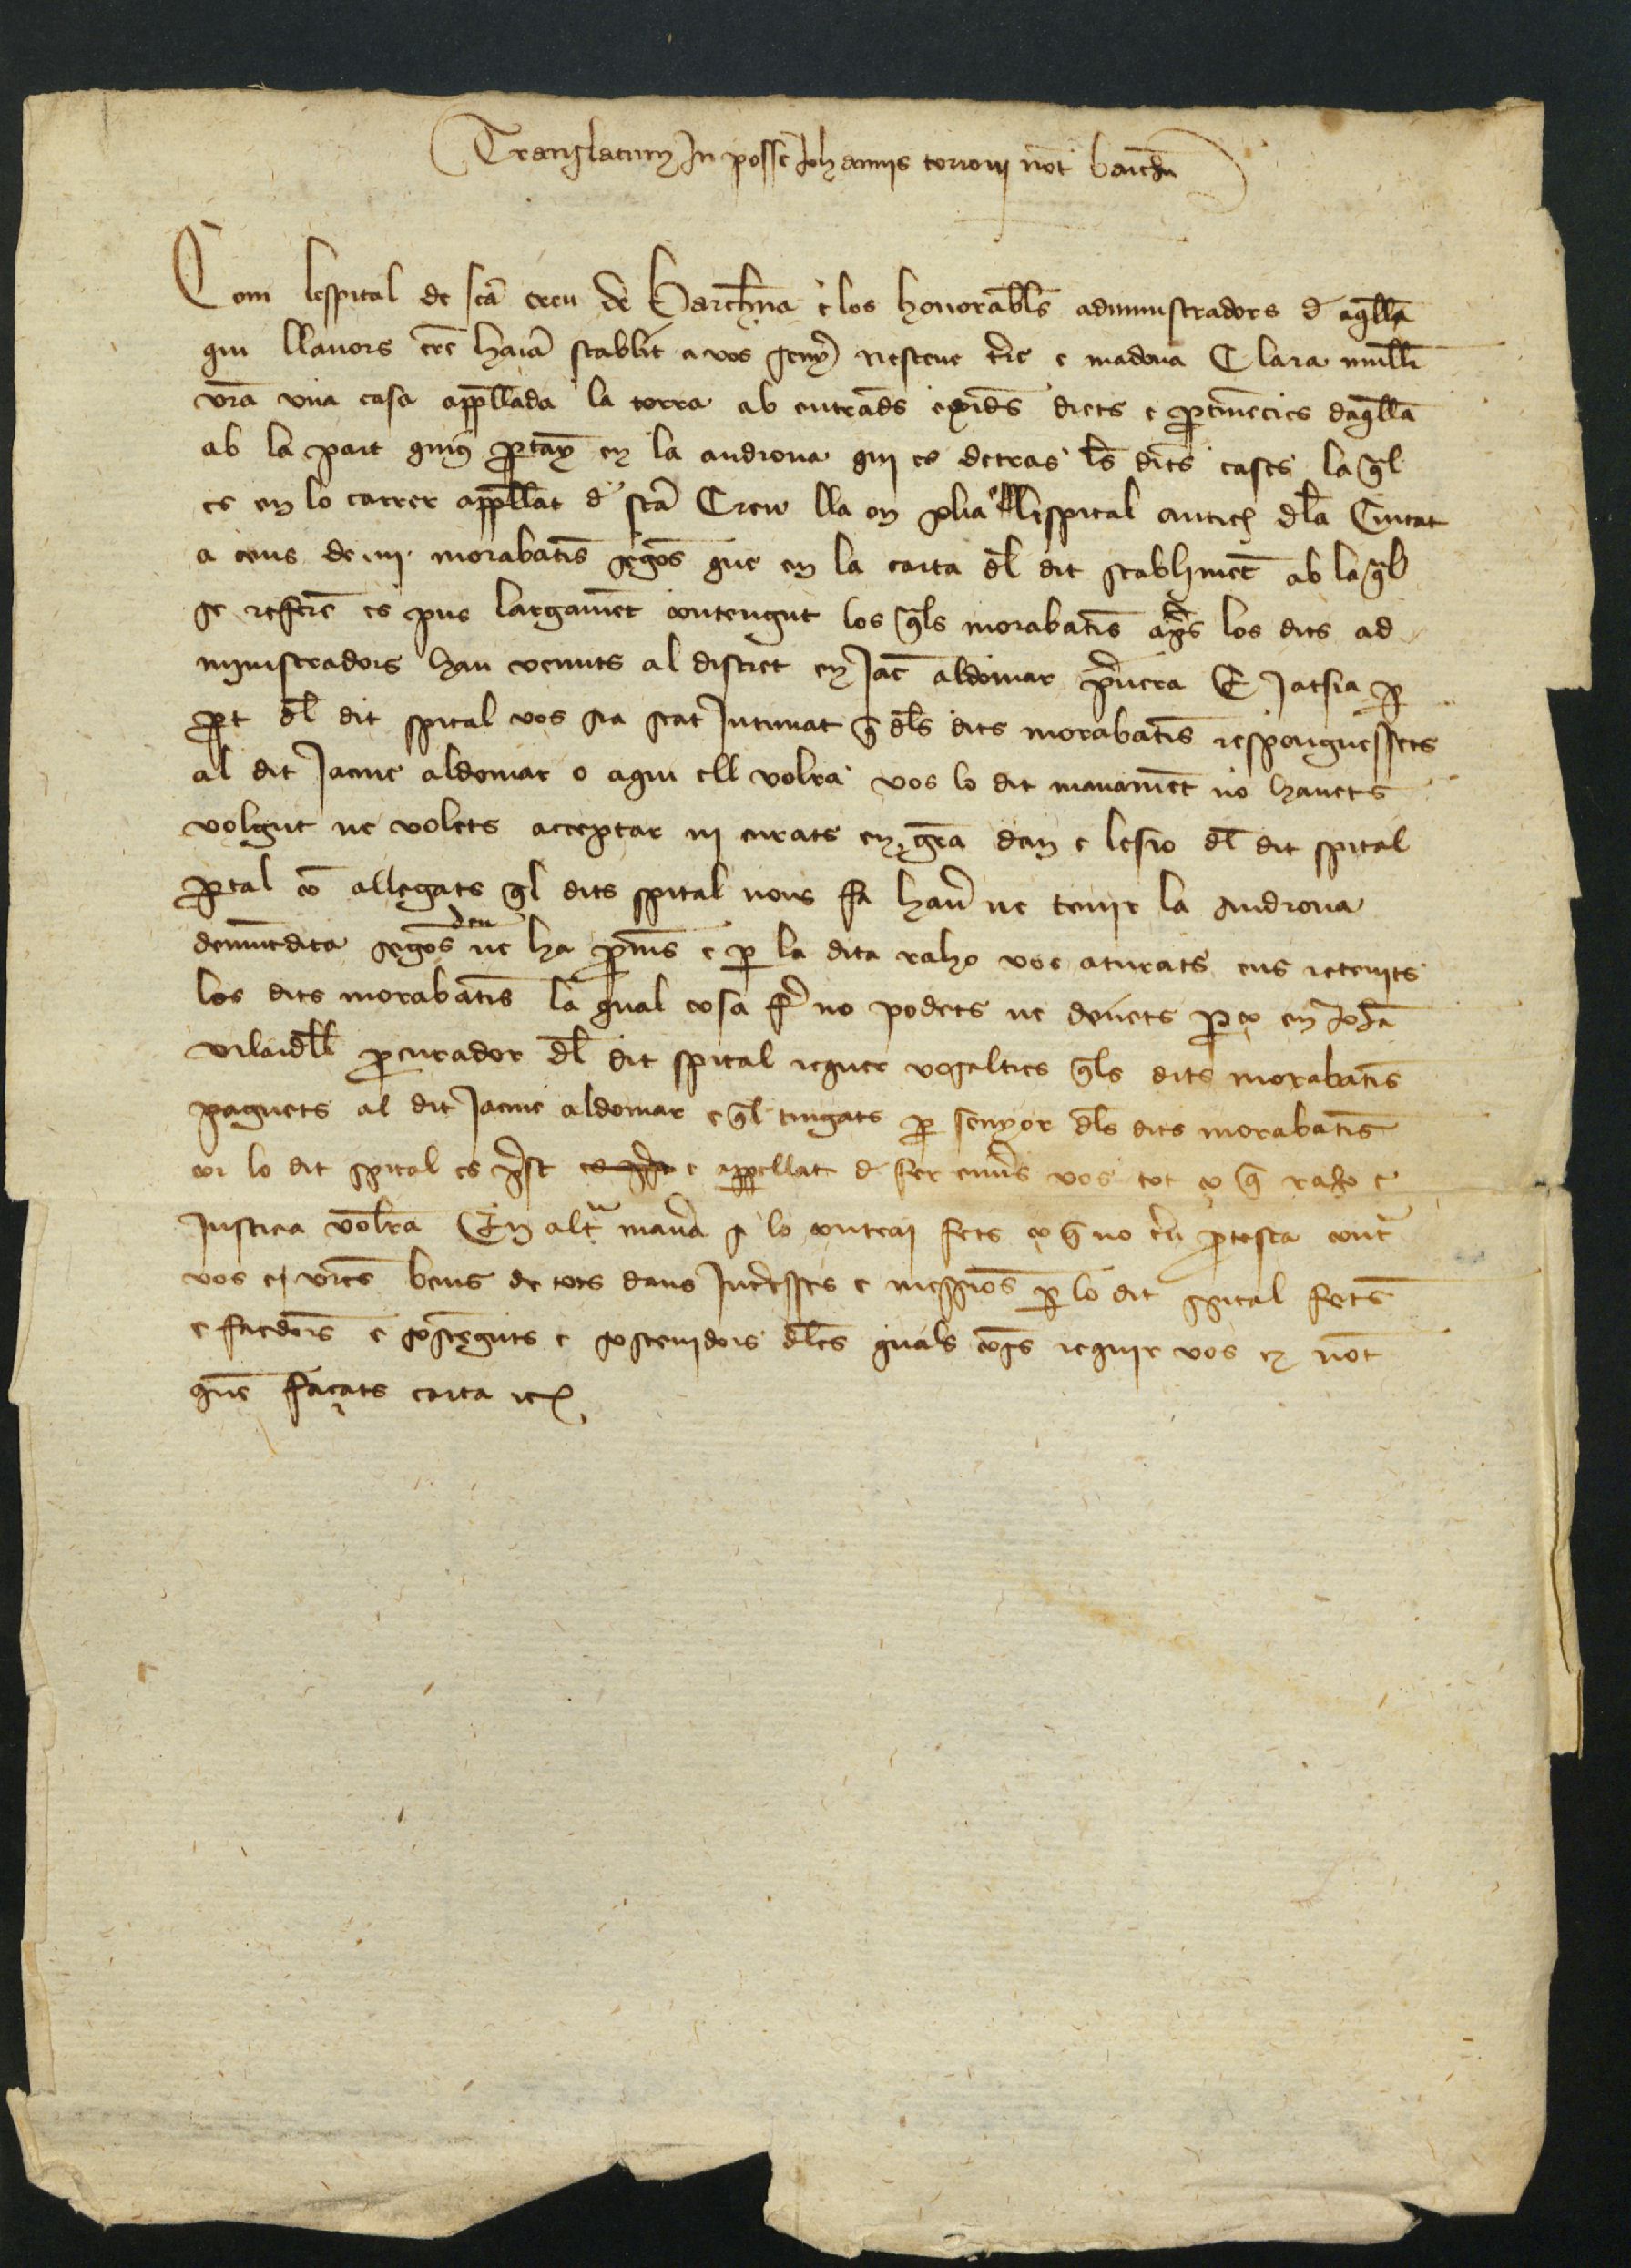 Translatum in posse Johannis torroni not barchn
Com lespital de scã creu de Barchna e los honorabls administradors d aqlla
qui llauors ere hauiã stablit a vos seny e madona Clara mulli
vrã vna casa appllada la torra ab entrads exids drets e ptinẽcies daqlla
ab la part quis ptany en la androna qui es detras ls dits cases la ql
es en lo carrer appllat d stã Creu lla on lespital antich dla Ciutat
a cens de morabatis segõs que en la carta dl dit stablimẽt ab la ql
se referẽ es pus largamẽt contengut los qls morabatis aprs los dits ad
ministradors han venuts al discret en Jac aldomar E Jatsia p
pt dl dit spital vos sia stat Intimat q dls dits morabatis responguessets
al dit Jacme aldomar o aqui ell volra vos lo dit manamẽt no hauets
volgut ne volets acceptar ni curats en grã dan e lesio dl dit spital
ptal co allegats ql dits spital nous fa hau ne tenir la androna
demuntdita segõs deu ne ha pms e p la dita raho vos aturats eus retenits
los dits morabatis la qual cosa fr no podets ne deuets p ço en Johã
vilardll pcurador dl dit spital requer vosaltres qls dits morabatis
paguets al dit Jacme aldomar e ql tingats p senyor dls dits morabatis
cor lo dit spital es pst e appellat d fer enus vos tot ço q raho e
Justicia volra En altr mana si lo contrari fets ço q no cru ptesta contr
vos e vres bens de tots dans Intresses e messiõs p lo dit spital fets
e faedors e sostẽguts e sostenidors dles quals coses requir vos en not
quẽ façats carta etc